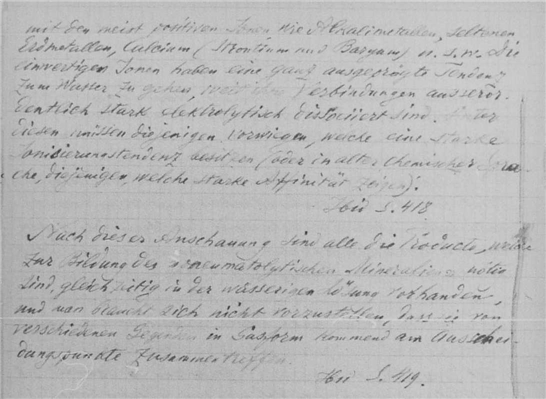 mit den meist positiven Ionen wie Alkalimetallen, seltenen
Erdmetallen, Calcium (Strontium und Baryum) u. s. w. Die
einwertigen Ionen haben eine ganz ausgeprägte Tendenz
zum Wasser zu gehen, weil ihre Verbindungen ausseror-
dentlich stark elektrolytisch dissociiert sind. Unter
diesen müssen diejenigen vorwiegen, welche eine starke
Ionisierungstendenz besitzen (oder in alter chemischer Spra-
che, diejenigen, welche starke Affinität zeigen).
Ibid S. 418
Nach dieser Anschauung sind alle die Producte, welche
zur Bildung des pneumatolytischen Mineralien nötig
sind, gleichzeitig in der wässerigen Lösung vorhanden,
und man braucht sich nicht vorzustellen, dass sie von
verschiedenen Gegenden in Gasform kommend am Ausschei-
dungspunkte zusammentreffen.
Ibid S. 419.